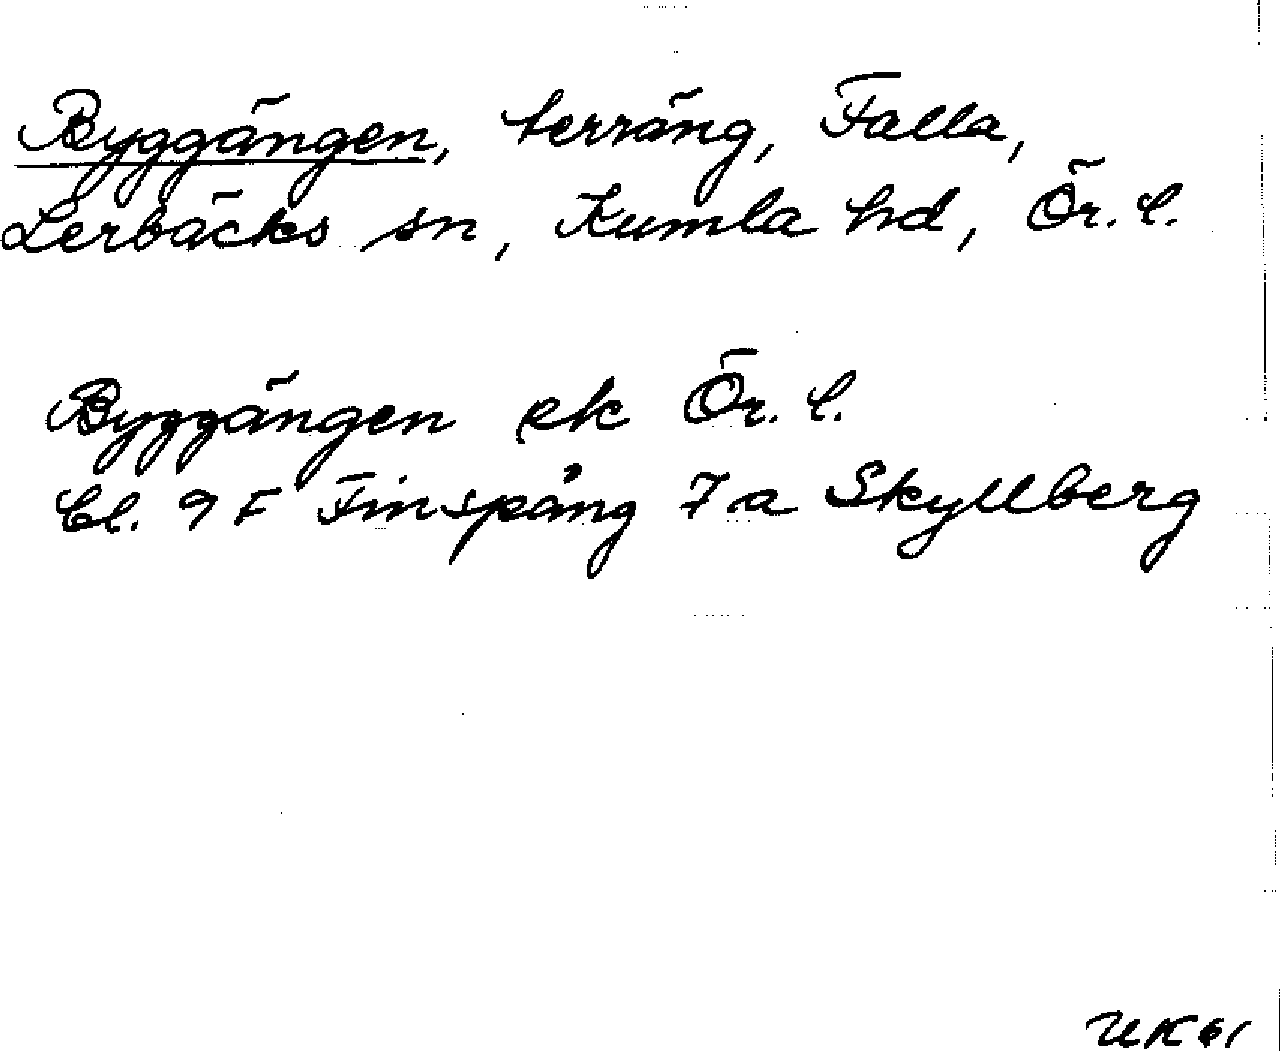 Byggängen, terräng, Falla,
Lerbäcks sn, Kumla hd, Ör. l.
Byggängen ek Ör. l.
bl. 9 F Finspång 7 a Skyllberg
UK 61